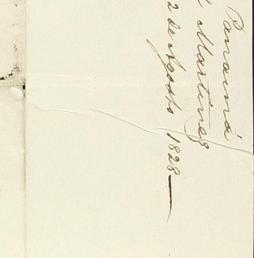 Panamá
Martinez
2 de Agosto 1828